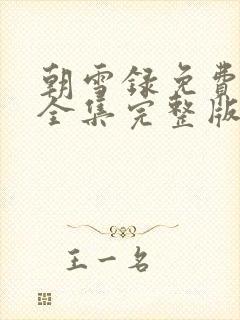 朝雪録免費
全集完整版
王一名